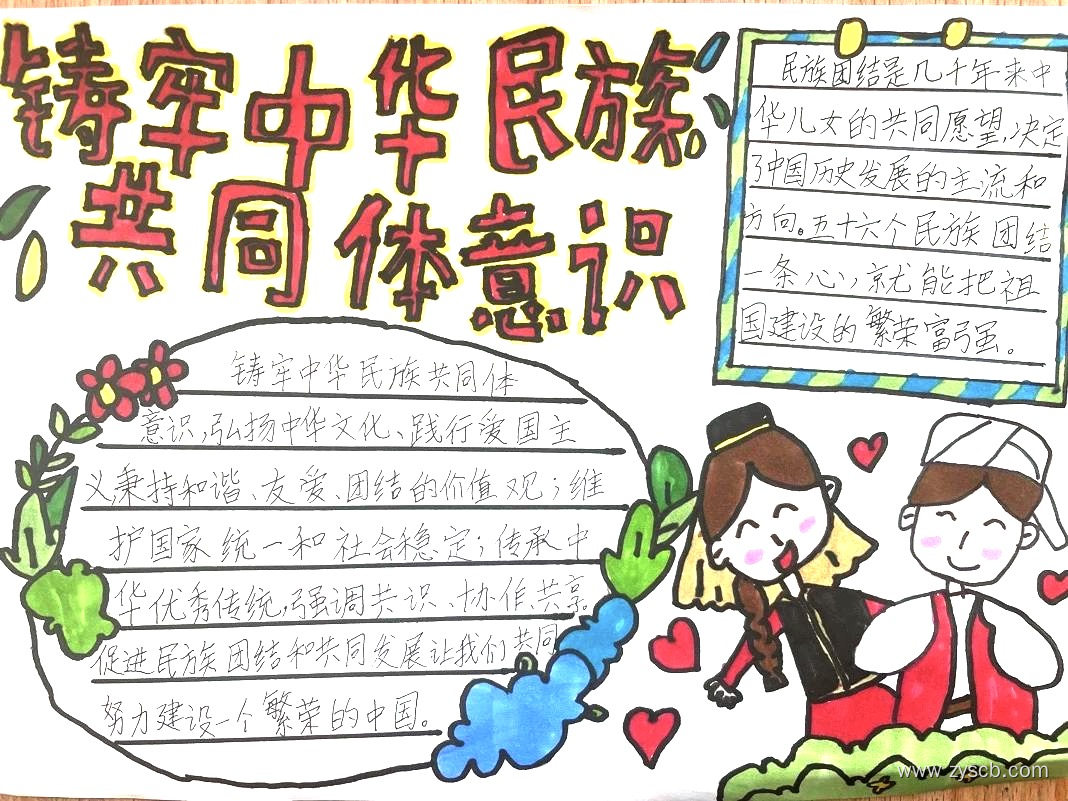 铸牢中华民族
共同体意识
民族团结是几千年来中
华儿女的共同愿望,决定
了中国历史发展的主流和
方向。五十六个民族团结
一条心,就能把祖
国建设的繁荣富强。
铸牢中华民族共同体
意识,弘扬中华文化、践行爱国主
义秉持和谐、友爱、团结的价值观;维
护国家统一和社会稳定;传承中
华优秀传统,强调共识、协作、共享。
促进民族团结和共同发展让我们共同
努力建设一个繁荣的中国。
www.zyscb.com